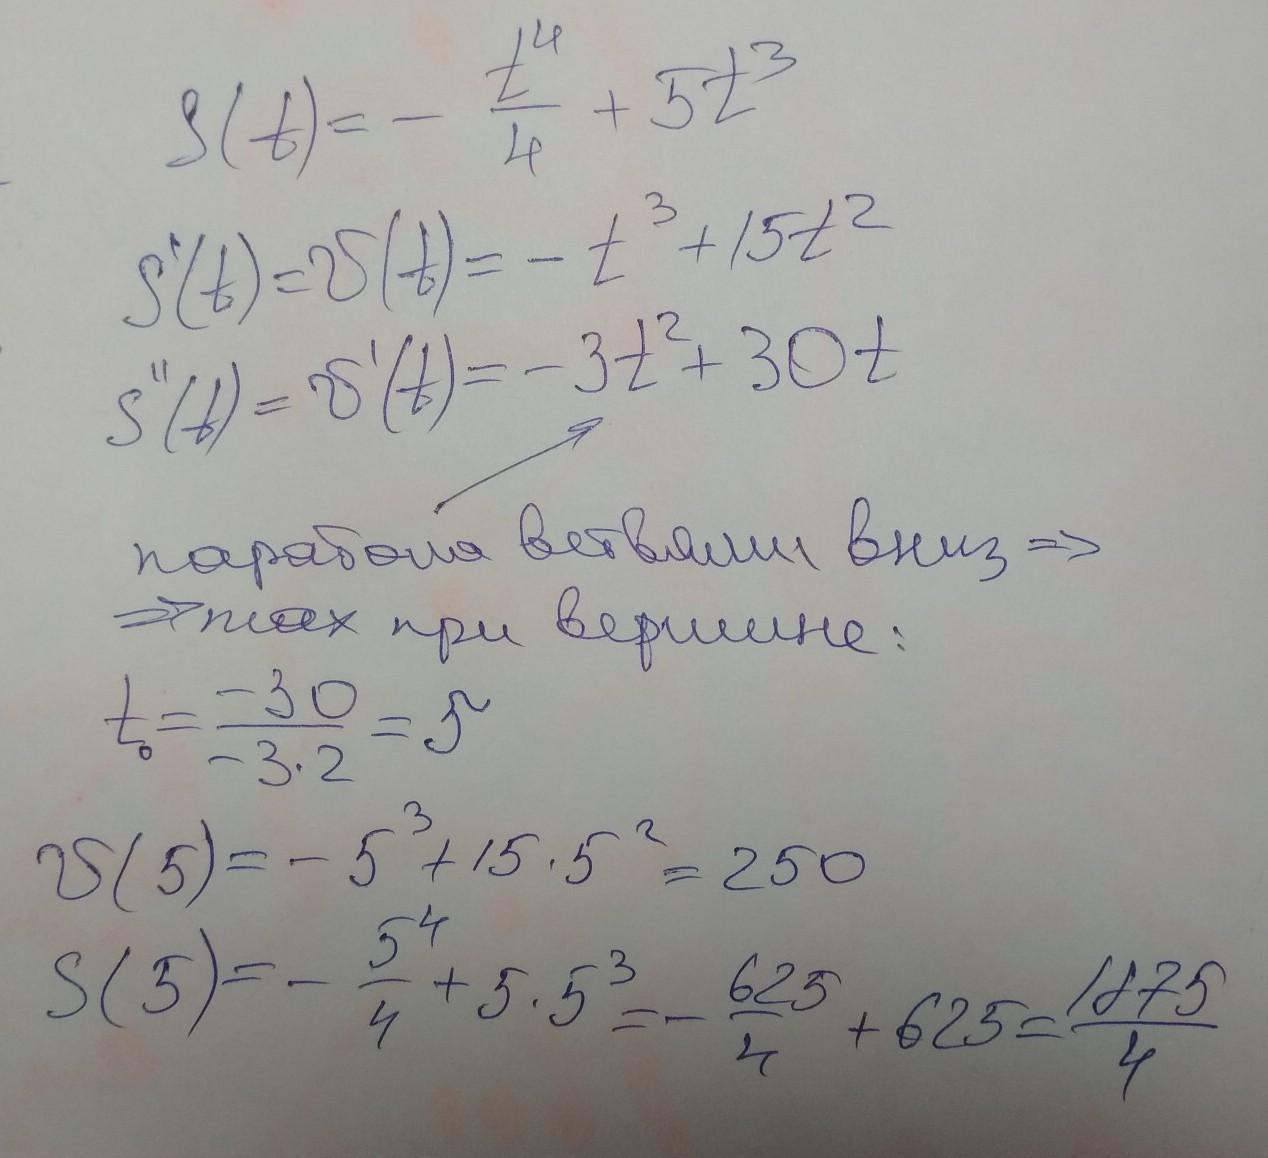 S(t) = - t⁴/4 + 5t³
S'(t) = υ(t) = - t³ + 15t²
S''(t) = υ'(t) = - 3t² + 30t
парабола ветвями вниз =>
=> max при вершине:
t₀ = -30/-3·2 = 5
υ(5) = - 5³ + 15·5² = 250
S(5) = - 5⁴/4 + 5·5³ = - 625/4 + 625 = 1875/4